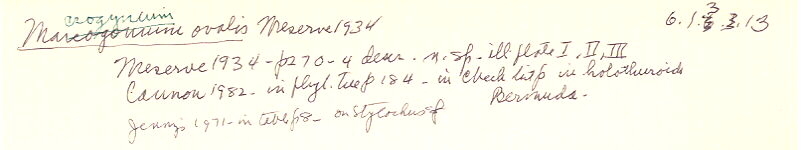 crogynium 6.1.3.3.13
Macrogynium ovalis Meserve 1934
Meserve 1934 - p270 - 4 descr. n.sp. - ill plate I, II, III
Cannon 1982 - in phyl. tree p 184 - in check list p in holothuroids
Bermuda -
Jennings 1971 - in table p 8 - on Stylochus sp